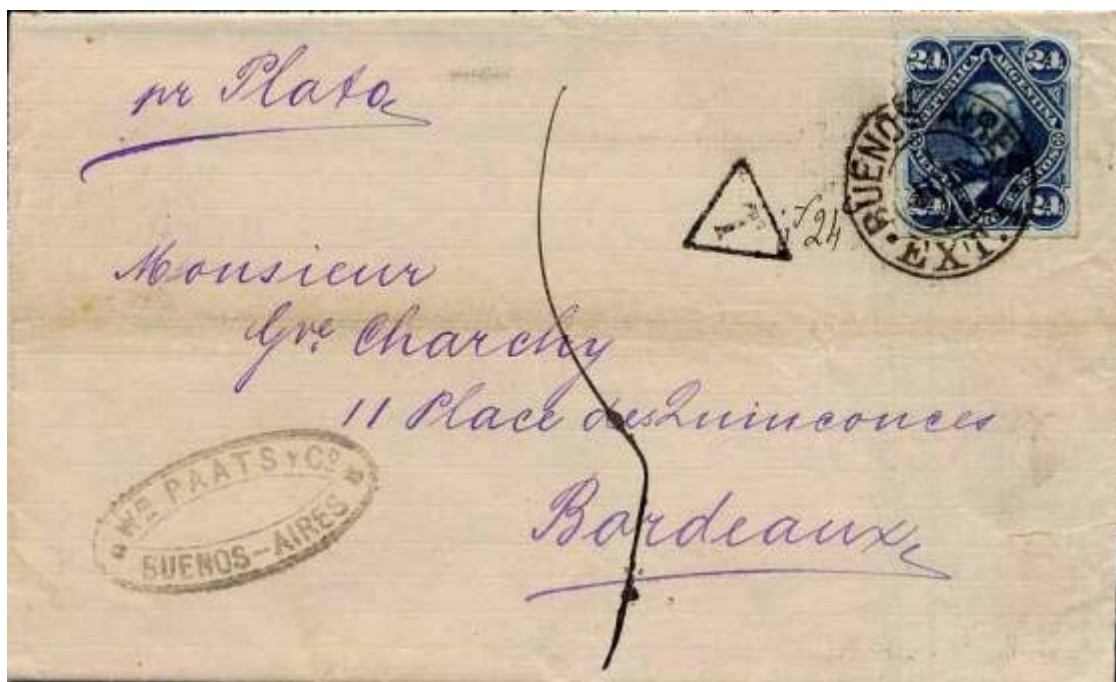 pr Plata
24 24
REPUBLICA ARGENTINA
24 24
BUENOS AIRES
EXT.
T
24
Monsieur
Gve. Charchy
11 Place des Quinconces
Bordeaux
Wm PAATS Y Co
BUENOS-AIRES